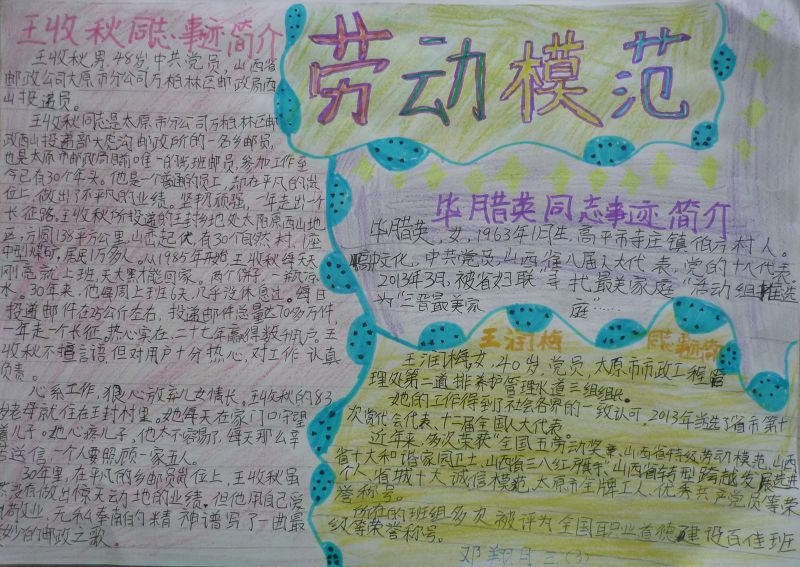 王收秋同志事迹简介
王收秋,男,48岁,中共党员,山西省
邮政公司太原市分公司万柏林区邮政局西
山投递员。
王收秋同志是太原市分公司万柏林区邮
政西山投递部大虎沟邮政所的一名乡邮员,
也是太原市邮政局目前唯一的跨班邮员,参加工作至
今已有30个年头。他是一个普通的员工,却在平凡的岗
位上,做出了不平凡的业绩。坚韧顽强,一年走出一个
长征路,王收秋所投递的王封乡地处太原西山地
区,方圆138平方公里,山峦起伏,有30个自然村,1座
中型煤矿,居民1万多人。从1985年开始王收秋每天天
刚亮就上班,天大黑才能回家。两个饼子,一瓶凉
水。30年来,他每周上班6天,几乎没休息过。每日
投递邮件在25公斤左右,投递邮件总量达70多万件,
一年走一个长征。热心实在,二十七年赢得数千用户。王
收秋不擅言语,但对用户十分热心,对工作认真
负责。
心系工作,狠心放弃儿女情长。王收秋的83
岁老母就住在王封村里。她每天在家门口守望
着儿子。她心疼儿子,他太不容易了,每天那么辛
苦送信,一个人要照顾一家五人。
30年里,在平凡的乡邮员岗位上,王收秋虽
然没有做出惊天动地的业绩,但他用自己爱
岗敬业,无私奉献的精神谱写了一曲最
美妙的邮政之歌。
劳动模范
毕腊英同志事迹简介
毕腊英,女,1963年1月生,高平市寺庄镇伯方村人。
高中文化,中共党员,山西省八届人大代表,党的十八代表。
2013年3月,被省妇联寻找最美家庭“活动组推选
为“三晋最美家庭”……
王润梅同志事迹简介
王润梅,女,40岁,党员,太原市市政工程管
理处第二道排养护管理水道三组组长。
她的工作得到了社会各界的一致认可,2013年当选了省市第十
次党代会代表、十二届全国人大代表。
近年来,多次荣获“全国五一劳动奖章,山西省特级劳动模范,山西
省十大和谐家园卫士,山西省三八红旗手”山西省转型跨越发展先进
个人,省城十大诚信模范,太原市金牌工人,优秀共产党员等荣
誉称号。
所在的班组多次被评为全国职业道德建设百佳班
级等荣誉称号。
邓翔月三(3)